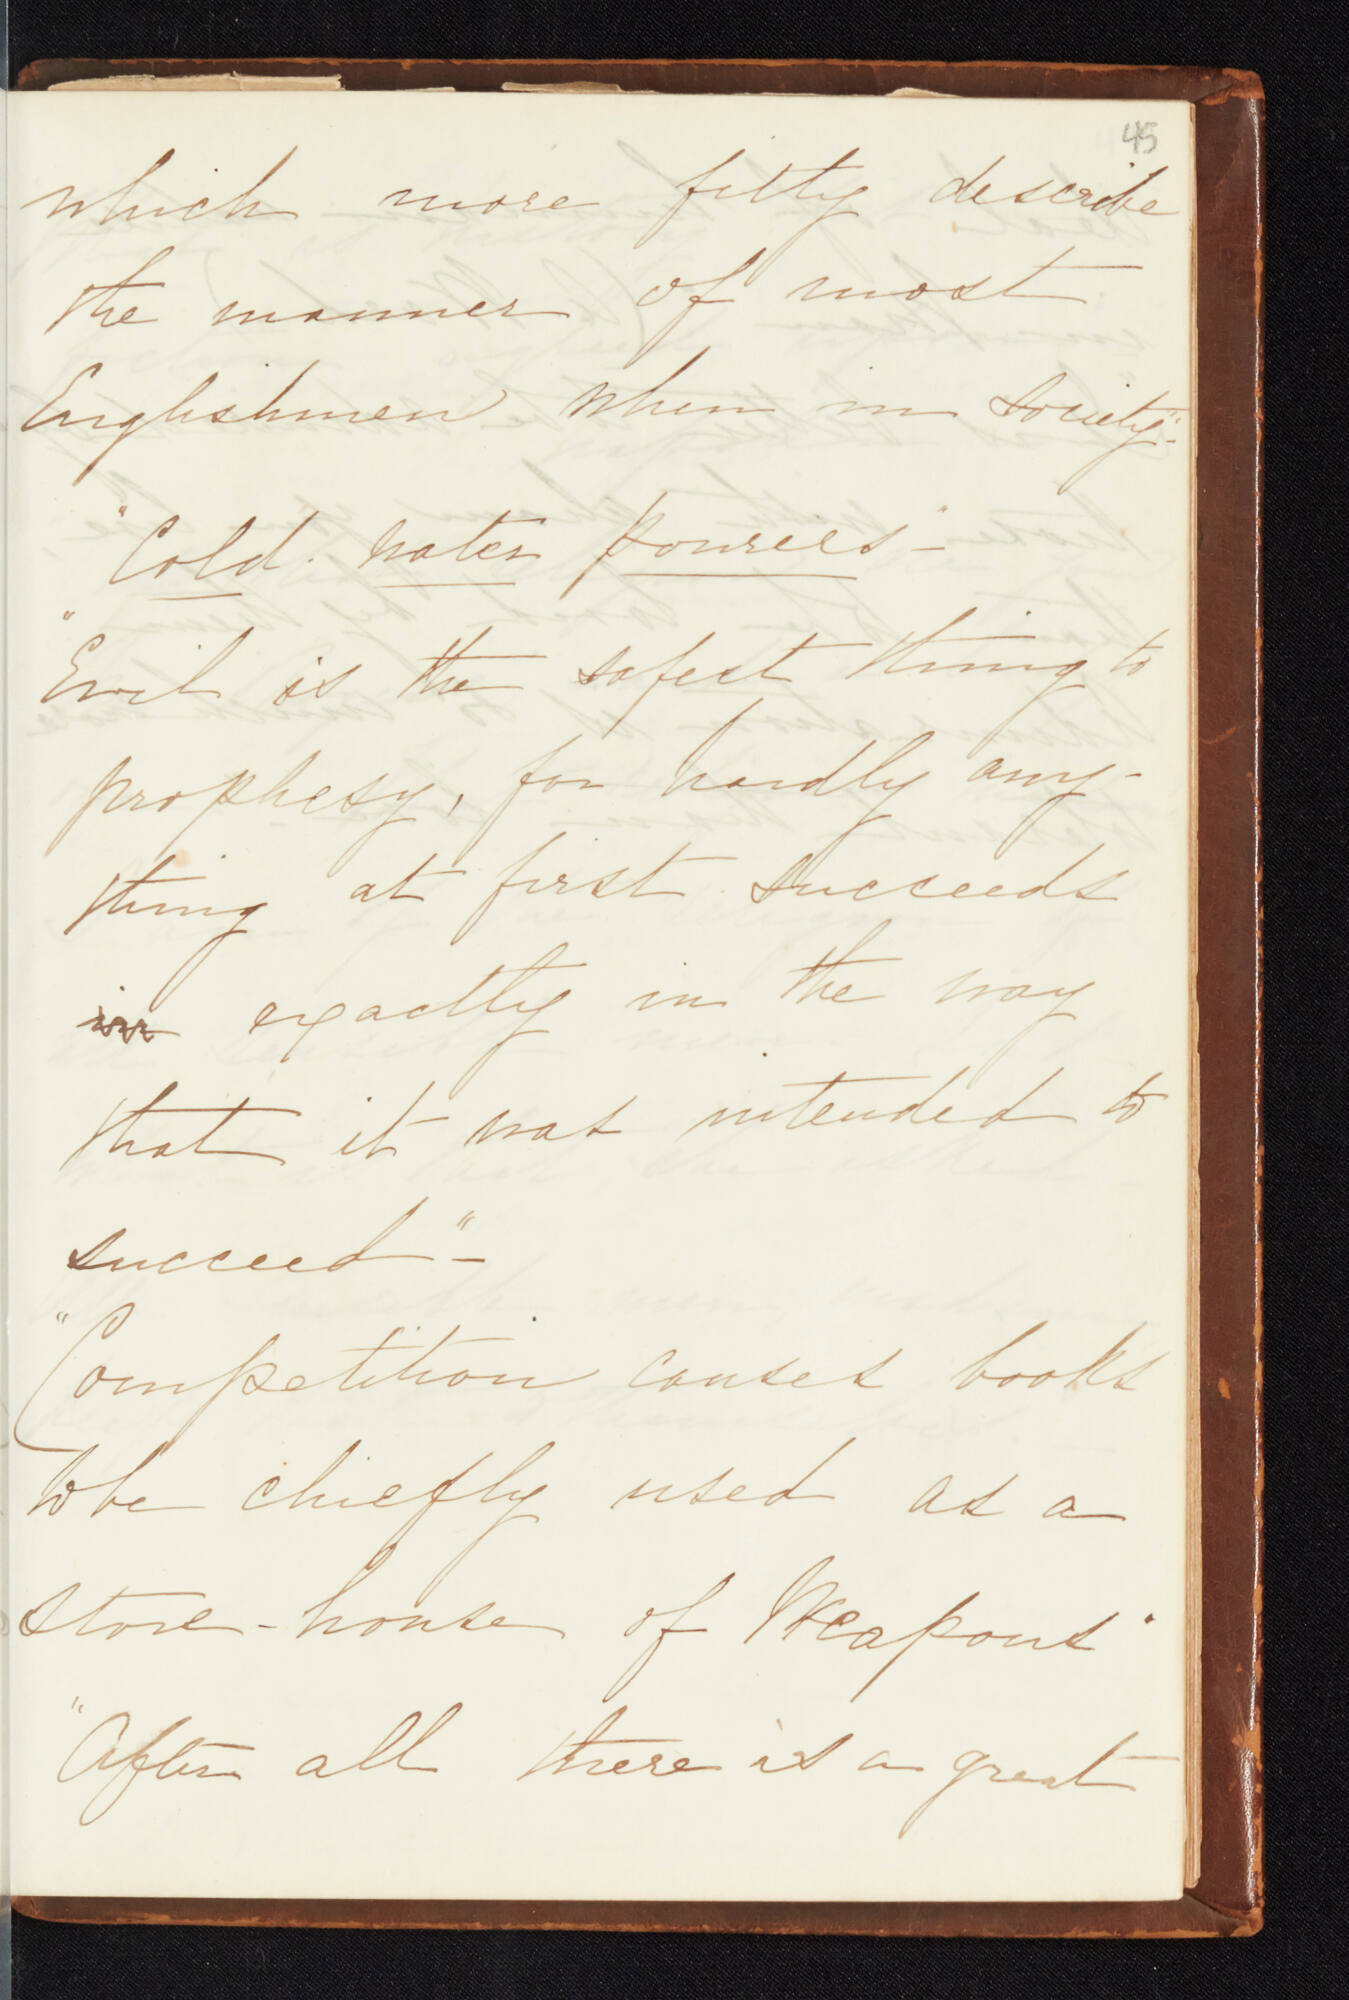 45
which more fitly describe
the manner of most
Englishmen when in society"-
"Cold water pourers"-
"Evil is the safest thing to
prophesy, for hardly any-
thing at first succeeds
in exactly in the way
that it was intended to
succeed"-
"Competition causes books
to be chiefly used as a
store-house of Weapons"
"After all there is a great